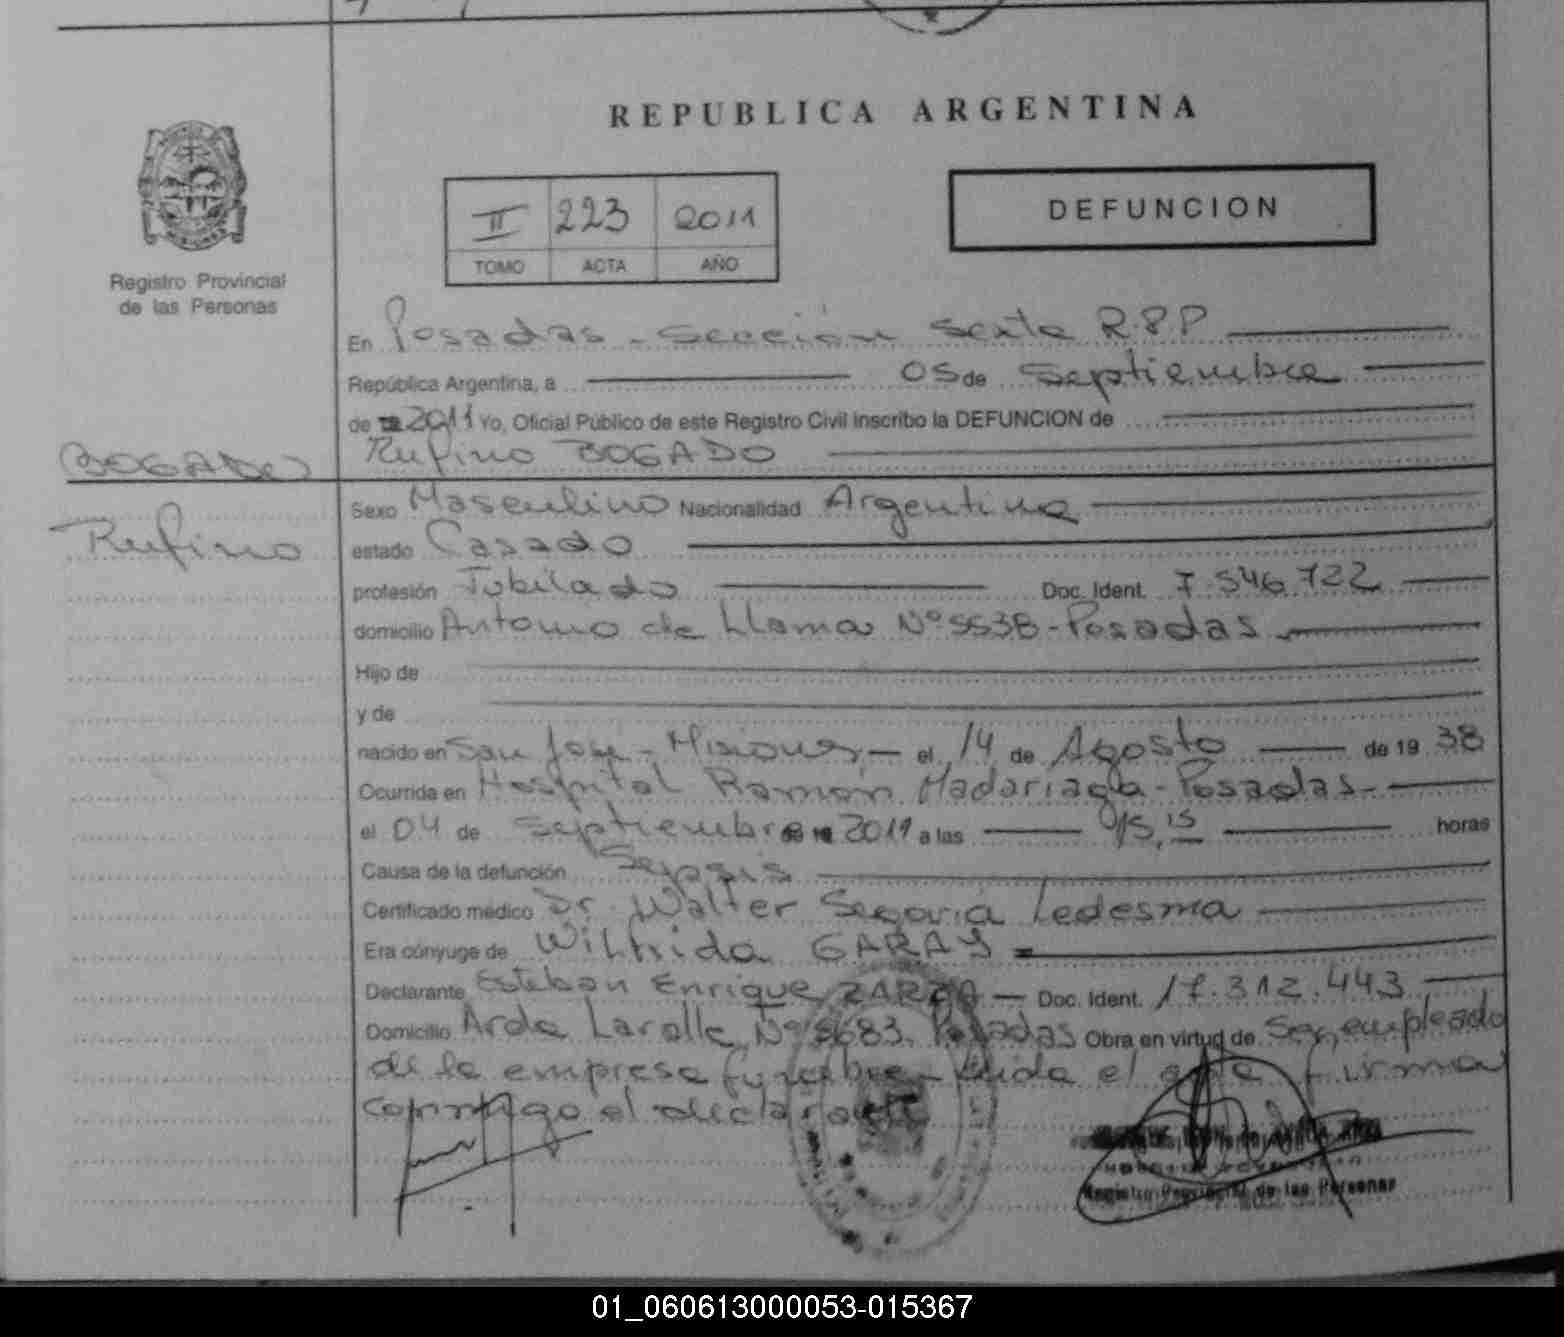 REPUBLICA ARGENTINA
II 223 2011
TOMO ACTA AÑO
DEFUNCION
Registro Provincial
de las Personas
En Posadas - Sección Sexta R.P.P
República Argentina, a 05 de Septiembre
de 2011 Yo, Oficial Público de este Registro Civil inscribo la DEFUNCION de
Rufino BOGADO
BOGADO
Rufino
Sexo Masculino Nacionalidad Argentina
estado Casado
profesión Jubilado Doc. Ident. 7.546.722
domicilio Antonio de Llama Nº 5538 - Posadas
Hijo de
y de
nacido en San José - Misiones - el 14 de Agosto de 19 38
Ocurrida en Hospital Ramón Madariaga - Posadas -
el 04 de Septiembre 2011 a las horas
Causa de la defunción Sepsis
Certificado médico Dr. Walter Segovia Ledesma
Era cónyuge de GARAY
Declarante Esteban Enrique ZARZA - Doc. Ident. 17.312.443
Domicilio Lavalle Nº 5683. Posadas Obra en virtud de Ser empleado
de la empresa fúnebre - Leída el acta firma
conmigo el declarante
Registro Provincial de las Personas
01_060613000053-015367